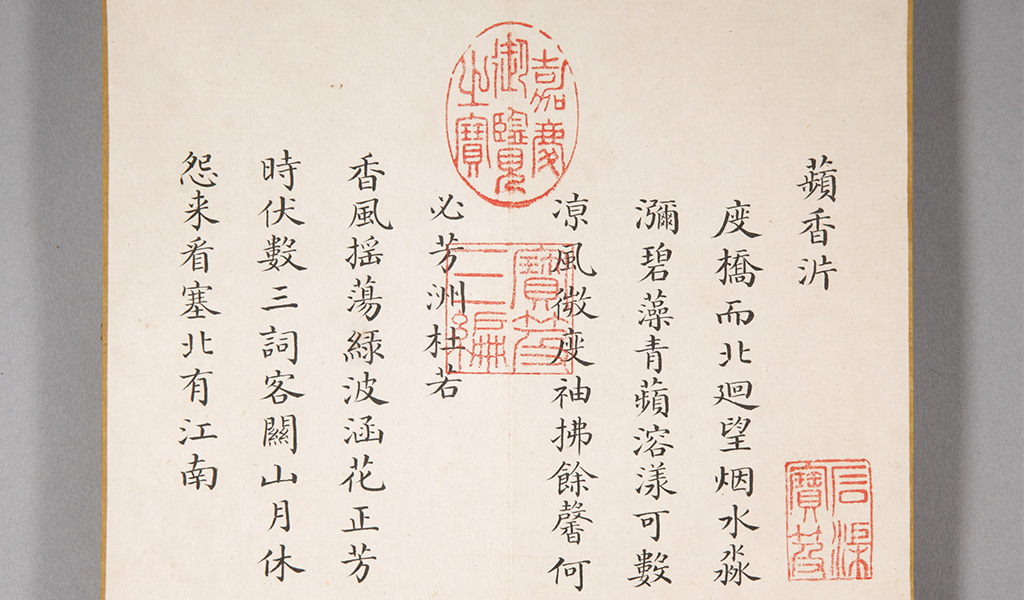 蘋香沜
度橋而北迴望烟水淼
瀰碧藻青蘋溶漾可數
凉風微度袖拂餘馨何
必芳洲杜若
香風揺蕩緑波涵花正芳
時伏數三詞客關山月休
怨来看塞北有江南
嘉慶御覽之寶
寶笈三編
石渠寶笈